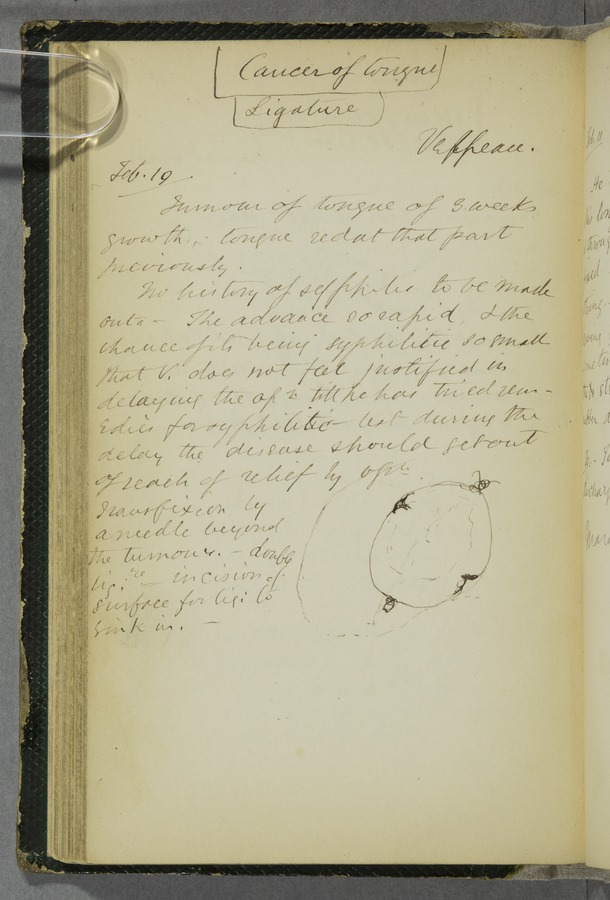 Cancer of tongue
Ligature
Velpeau.
Feb. 19
Tumour of tongue of 3 weeks
growth, - tongue red at that part
previously.
No history of syphilis to be made
out. - The advance so rapid & the
chance of its being syphilitic so small
that V. does not feel justified in
delaying the opn till he has tried rem-
edies for syphilitic - lest during the
delay the disease should get out
of reach of relief by opn.
Transfixion by
a needle beyond
the tumour. - double
lig.re - incision of
surface for lig: to
sink in. -